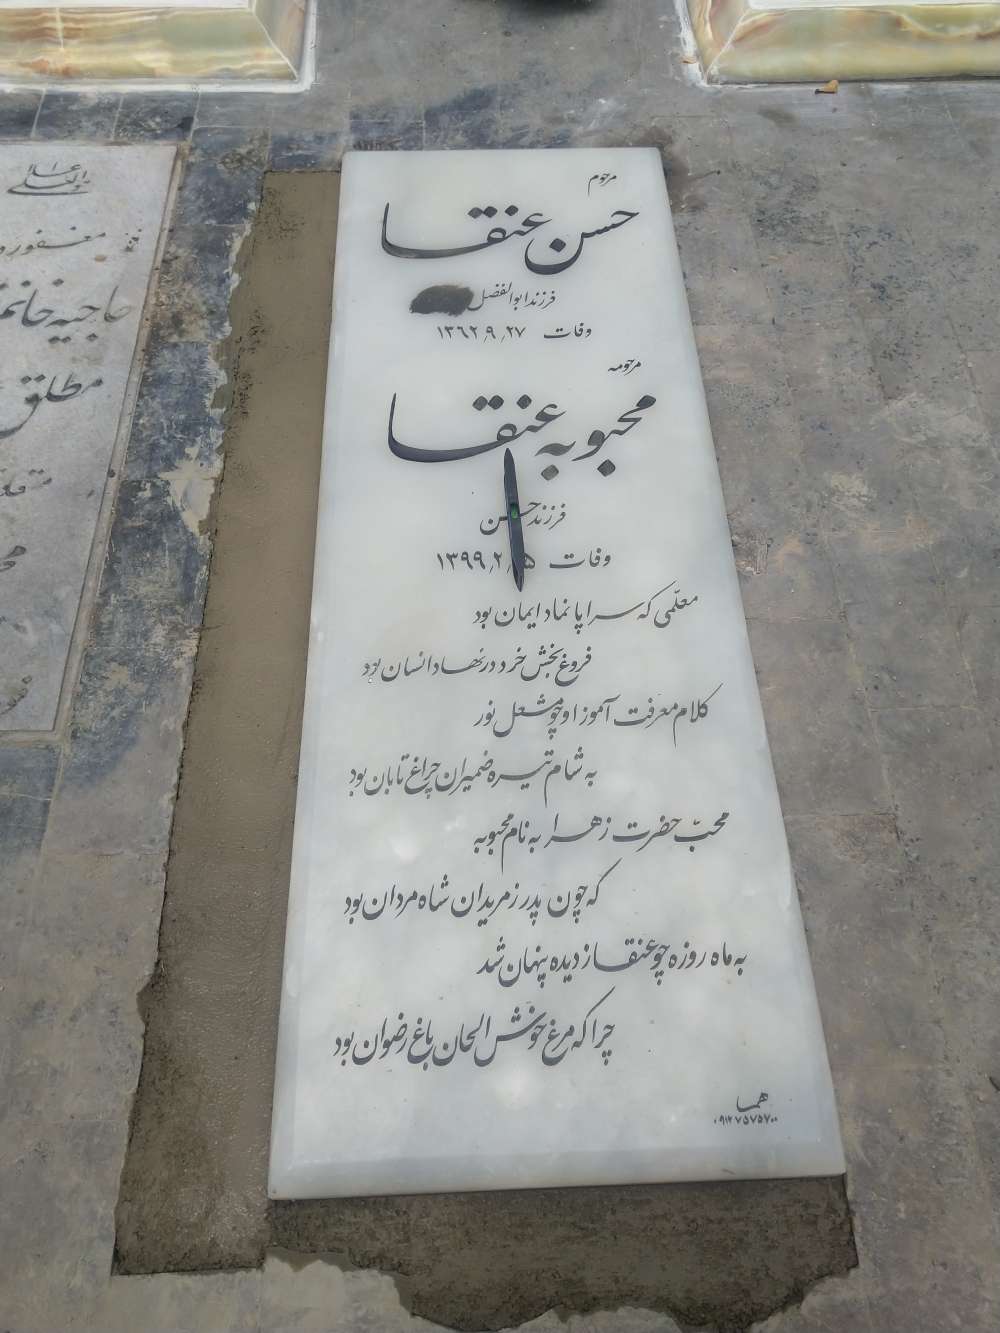 مرحوم
حسن عنقا
فرزند ابوالفضل
وفات ۱۳۶۲٫۹٫۲۷
مرحومه
محبوبه عنقا
فرزند حسن
وفات ۱۳۹۹٫۲٫
معلّمی که سراپا نماد ایمان بود
فروغ بخش خرد در نهاد انسان بود
کلام معرفت آموز او چو مشعل نور
به شام تیره ضمیران چراغ تابان بود
محبّ حضرت زهرا به نام محبوبه
که چون پدر ز مریدان شاه مردان بود
به ماه روزه چو عنقا ز دیده پنهان شد
چرا که مرغ خوش الحان باغ رضوان بود
هما
۰۹۱۲۷۵۷۵۷۰۰
مغفوره
حاجیه خانم
مطلق